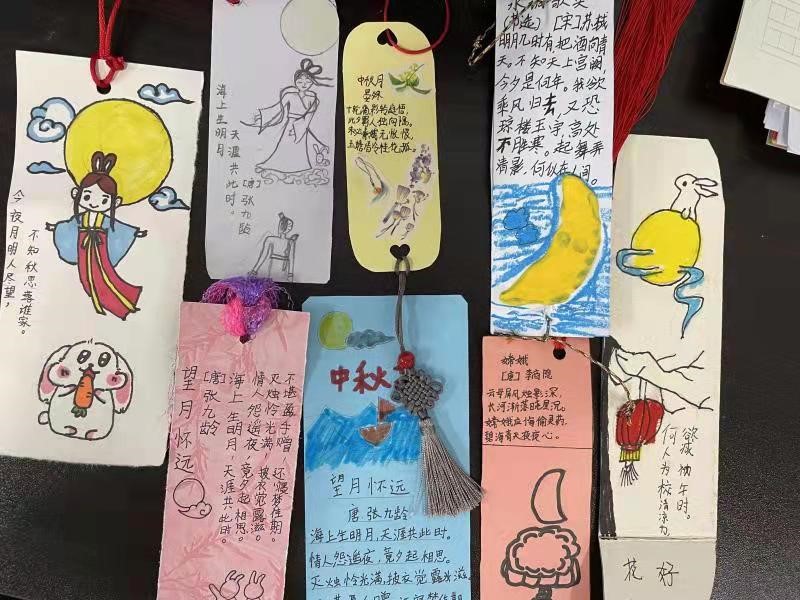 今夜月明人尽望，
不知秋思落谁家。
海上生明月
天涯共此时。
[唐]张九龄
中秋月
晏殊
十轮霜影转庭梧，
此夕羁人独向隅。
未必素娥无怅恨，
玉蟾清冷桂花孤。
[宋]苏轼
明月几时有把酒问青
天。不知天上宫阙，
今夕是何年。我欲
乘风归去，又恐
琼楼玉宇，高处
不胜寒。起舞弄
清影，何似在人间。
望月怀远
[唐]张九龄
海上生明月，天涯共此时。
情人怨遥夜，竟夕起相思。
灭烛怜光满，披衣觉露滋。
不堪盈手赠，还寝梦佳期。
中秋
望月怀远
唐 张九龄
海上生明月，天涯共此时。
情人怨遥夜，竟夕起相思。
灭烛怜光满，披衣觉露滋
嫦娥
[唐]李商隐
云母屏风烛影深，
长河渐落晓星沉。
嫦娥应悔偷灵药，
碧海青天夜夜心。
何人为校清凉力，
欲减初午时。
花好